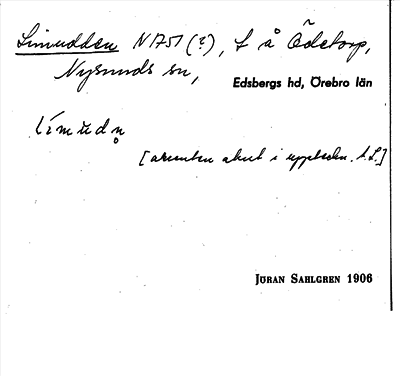 Limudden N1751 (?), L å Ödetorp,
Nysunds sn,
Edsbergs hd, Örebro län
límŭdn̥
[accenten akut i uppteckn. J. S.]
JÖRAN SAHLGREN 1906